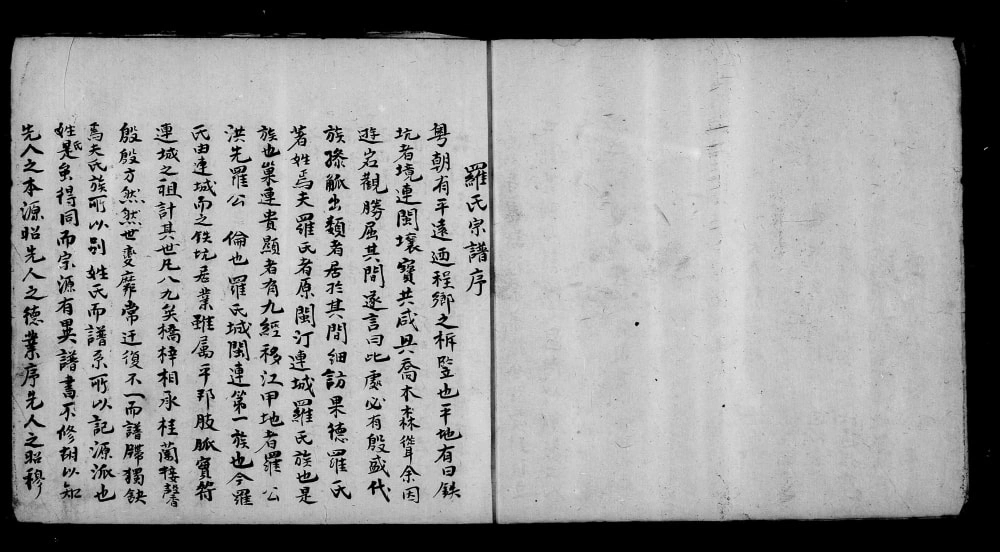 羅氏宗譜序
粵朝有平遠迺程鄉之柝豎也平地有曰鉄
坑者境連閩壤寶共咸具喬木森聳余因
遊岩觀勝屈其間遂言曰此處必有殷盛代
族掾觚出類者居於其間細訪果德羅氏
著姓焉夫羅氏者原閩汀連城羅氏族也是
族也巢連貴顯者有九經移江甲地者羅公
洪先羅公 倫也羅氏城閩連第一族也今羅
氏由連城而之鉄坑居業雖属平邦肢脈寶符
連城之祖計其世凡八九矣橋梓相承桂蘭接馨
殷殷方然然世变靡常迁復不一而譜牒獨缺
焉夫氏族所以别姓氏而譜系所以記源派也
姓氏是虽得同而宗源有異譜書不修胡以知
先人之本源昭先人之德業序先人之昭穆